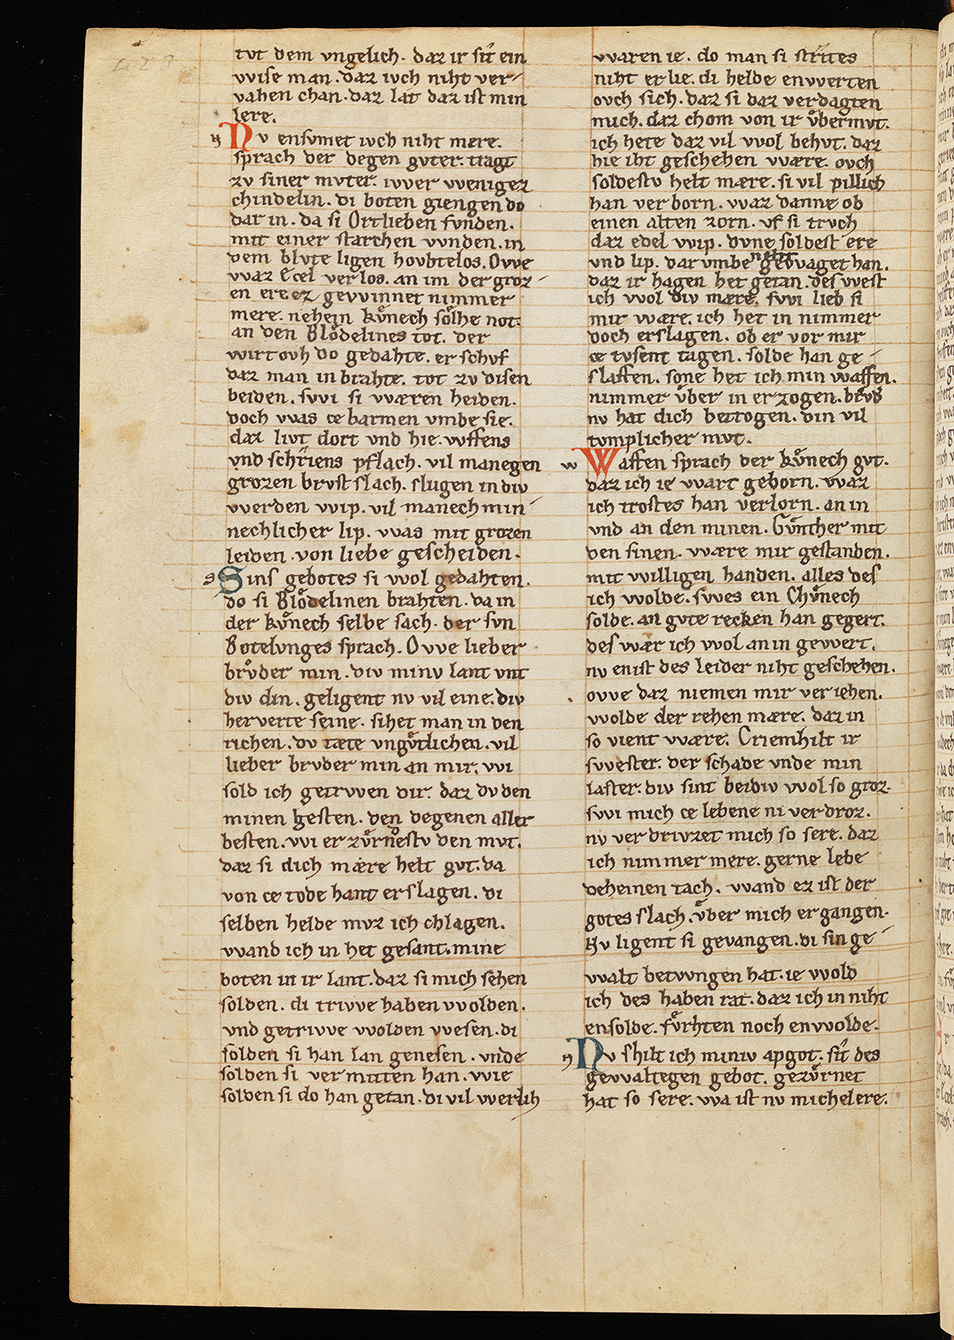 tvt dem vngelich. daz ir sit ein
wise man. daz ivch niht ver
vahen chan. daz lat daz ist min
lere.
Nv ensvmet ivch niht mere.
sprach der degen gvter. tragt
zv siner mvter. iwer weniger
chindelin. di boten giengen do
dar in. da si Ortlieben fvnden.
mit einer starchen wnden. in
dem blvte ligen hovbtelos. Owe
waz Ecel verlos. an im der groz
en ere ez gewinnet nimmer
mere. nehein kvͦnech soͤlhe not.
an den Bloͤdelines tot. der
wirt ovh do gedahte. er schvf
daz man in brahte. tot zv disen
beiden. swi si wæren heiden.
doch was ce barmen vmbe sie.
daz livt dort vnd hie. wffens
vnd schriens pflach. vil manegen
grozen brvst slach. slugen in div
werden wip. vil manech min
nechlicher lip. was mit grozen
leiden. von liebe gescheiden.
Sins gebotes si wol gedahten.
do si Bloͤdelinen brahten. da in
der kvͦnech selbe sach. der svn
Botelvnges sprach. Owe lieber
brvͦder min. div minv lant vnt
div din. geligent nv vil eine. div
herverte seine. sihet man in den
richen. dv tæte vngvͦtlichen. vil
lieber brvder min an mir. wi
sold ich getrwen dir. daz dv den
minen gesten. den degenen aller
besten. wi erzvͦrnestv den mvt.
daz si dich mære helt gvt. da
von ce tode hant erslagen. di
selben helde mvz ich chlagen.
wand ich in het gesant. mine
boten in ir lant. daz si mich sehen
solden. di triwe haben wolden.
vnd getriwe wolden wesen. di
solden si han lan genesen. vnde
solden si vermitten han. wie
solden si do han getan. di vil werlih
waren ie. do man si strites
niht erlie. di helde enwerten
ovch sich. daz si daz verdagten
mich. daz chom von ir vͦbermvt.
ich hete daz vil wol behvt. daz
hie iht geschehen wære. ovch
soldestv helt mære. si vil pillich
han verborn. waz danne ob
einen alten zorn. vf si trvch
daz edel wip. dvne soldest ere
vnd lip. dar vmbe niht gewaget han.
daz ir hagen het getan. des west
ich wol div mære. swi lieb si
mir wære. ich het in nimmer
doch erslagen. ob er vor mir
ce tvsent tagen. solde han ge
slaffen. sone het ich min waffen.
nimmer vͦber in erzogen. brvͦd
nv hat dich betrogen. din vil
tvmplicher mvt.
Waffen sprach der kvͦnech gvt.
daz ich ie wart geborn. waz
ich trostes han verlorn. an in
vnd an den minen. Gvͦnther mit
den sinen. wære mir gestanden.
mit willigen handen. alles des
ich wolde. swes ein Chvͦnech
solde. an gvte recken han gegert.
des war ich wol an in gewert.
nv enist des leider niht geschehen.
owe daz niemen mir veriehen.
wolde der rehen mære. daz in
so vient wære. Criemhilt ir
swester. der schade vnde min
laster. div sint beidiv wol so groz.
swi mich ce lebene ni verdroz.
nv verdrivzet mich so sere. daz
ich nimmer mere. gerne lebe
deheinen tach. wand ez ist der
gotes slach. vͦber mich ergangen.
Nv ligent si gevangen. di sin ge
walt betwngen hat. ie wold
ich des haben rat. daz ich in niht
ensolde. fvͦrhten noch enwolde.
Nv shilt ich miniv apgot. sit des
gewaltegen gebot. gezvͦrnet
hat so sere. wa ist nv michelere.